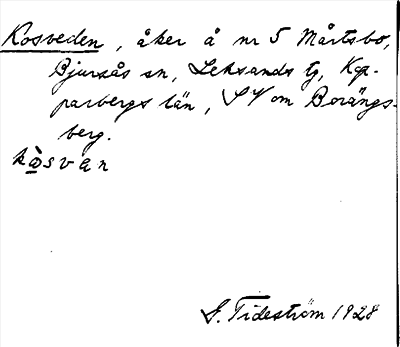 Kosveden, åker å nr 5 Mårtsbo,
Bjursås sn, Leksands tg, Kop-
parbergs län, SV om Borängs-
berg.
kòsvan
S. Tideström 1928